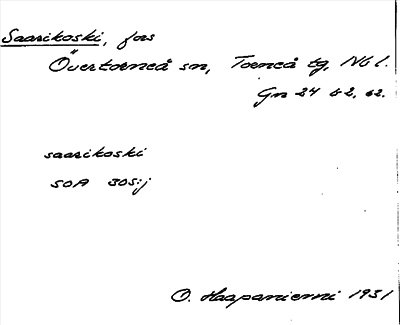 Saarikoski, fors
Övertorneå sn, Torneå tg, Nb l.
Gn 24 b2, c2.
saarikoski
SOA 305:j
O. Haapaniemi 1931